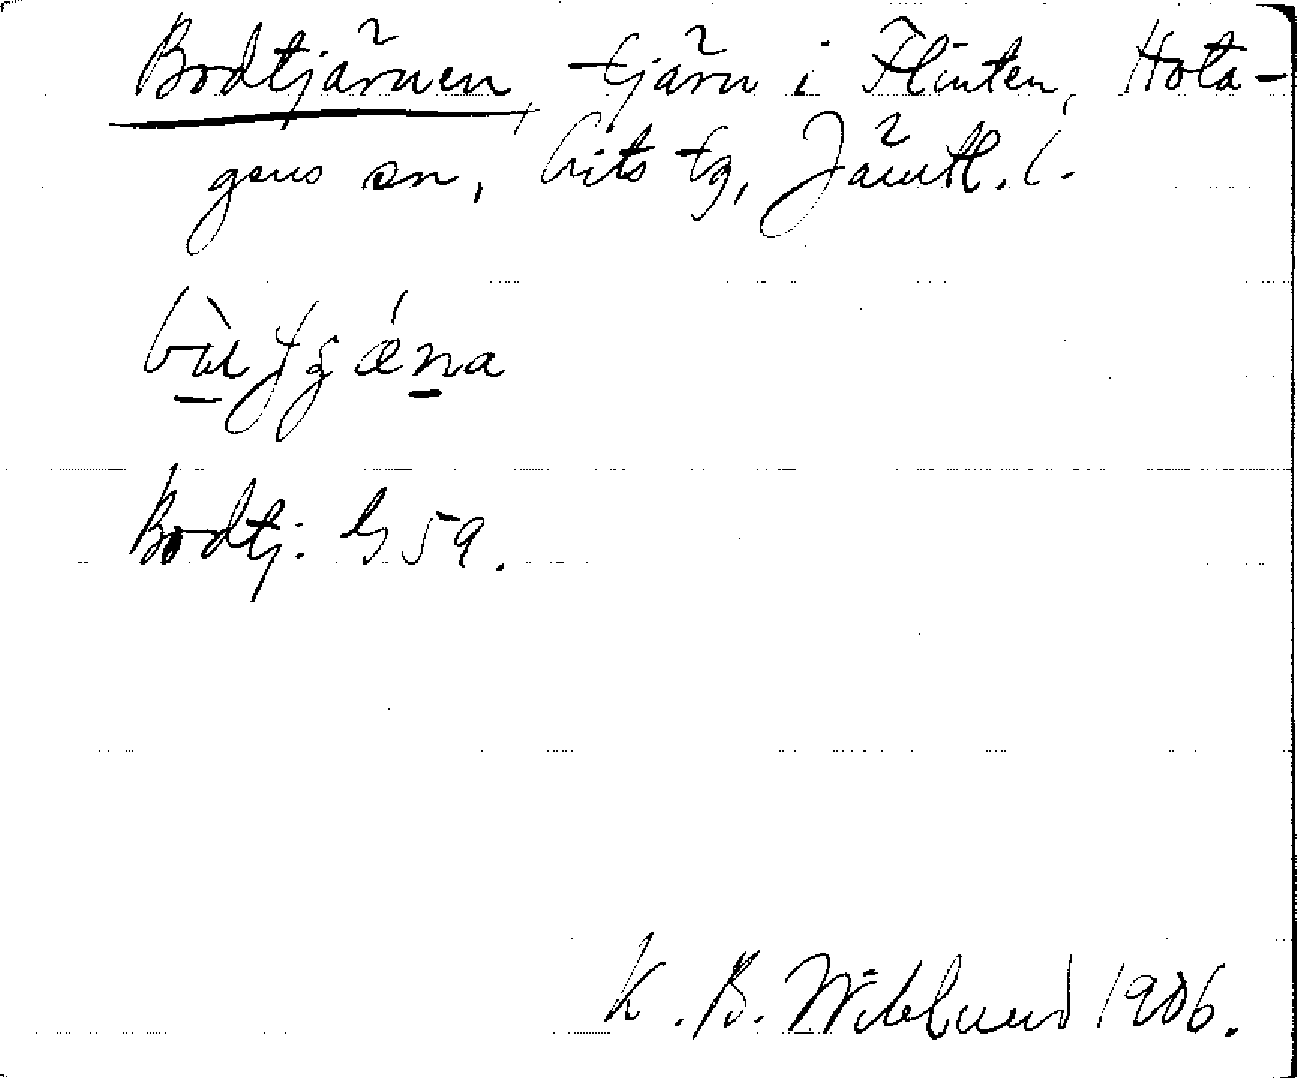 Bodtjärnen, tjärn i Flinten, Hota-
gens sn, Lits tg, Jämtl. l.
Bodtj. G 59.
K. B. Wiklund 1906.